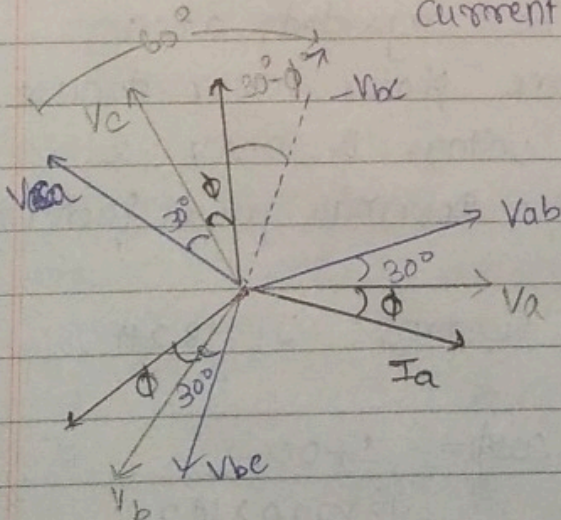 Current
60°
30-ϕ
-Vbc
Vc
ϕ
30°
Vab
30°
Va
ϕ
Ia
ϕ
30°
Vbc
Vb